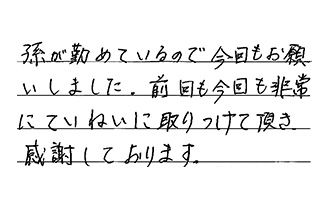 孫が勤めているので今回もお願
いしました。前回も今回も非常
にていねいに取りつけて頂き、
感謝しております。